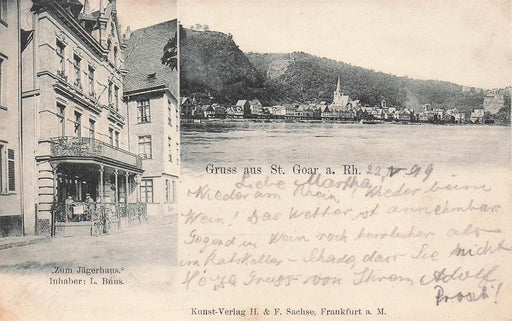 Gruss aus St. Goar a. Rh. 22 V 99
Liebe Martha
Wieder am Rhein Wieder beim
Wein! Das Wetter ist annehmbar
Gegend u Wein noch herrlicher als
im Ratskeller - Schade dass Sie nicht
Gruss von Ihrem Adolf
Prosit!
„Zum Jägerhaus.“
Inhaber: L. Büns.
Kunst-Verlag H. & F. Sachse, Frankfurt a. M.